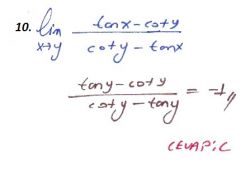 10. lim tanx-coty
x→y coty-tanx
tany-coty
coty-tany = -1//
CEVAP: C